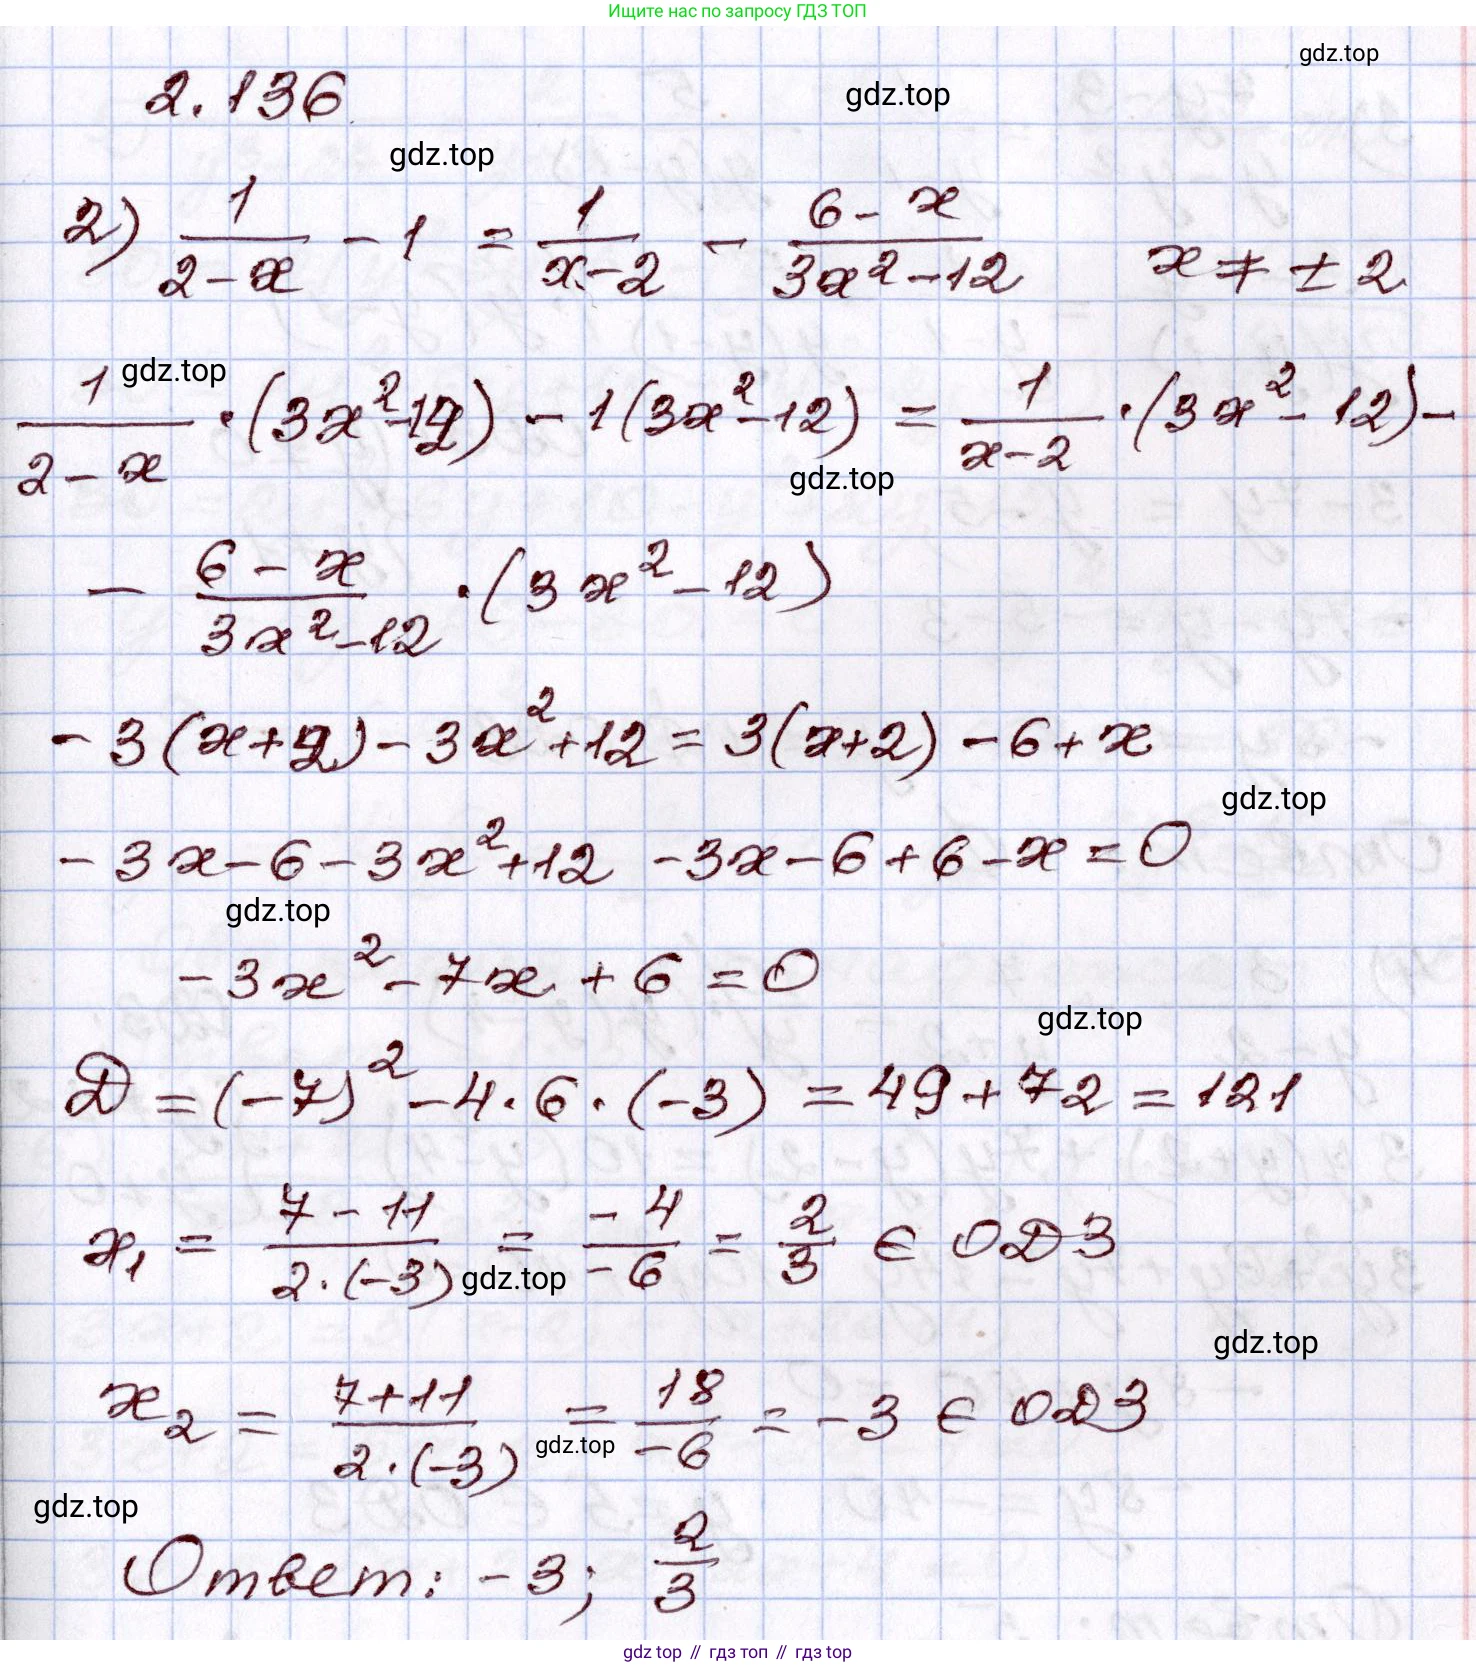 Ищите нас по запросу ГДЗ ТОП
gdz.top
2.136
gdz.top
gdz.top
2) 1/(2-x) - 1 = 1/(x-2) - (6-x)/(3x²-12)   x ≠ ±2
gdz.top
1/(2-x) · (3x²-12) - 1(3x²-12) = 1/(x-2) · (3x²-12) -
gdz.top
- (6-x)/(3x²-12) · (3x²-12)
-3(x+2) - 3x² + 12 = 3(x+2) - 6 + x
gdz.top
-3x - 6 - 3x² + 12 - 3x - 6 + 6 - x = 0
gdz.top
-3x² - 7x + 6 = 0
gdz.top
D = (-7)² - 4·6·(-3) = 49 + 72 = 121
x₁ = (7-11)/(2·(-3)) = -4/-6 = 2/3 ∈ ОДЗ
gdz.top
gdz.top
x₂ = (7+11)/(2·(-3)) = 18/-6 = -3 ∈ ОДЗ
gdz.top
gdz.top
Ответ: -3; 2/3
gdz top // гдз топ // gdz.top